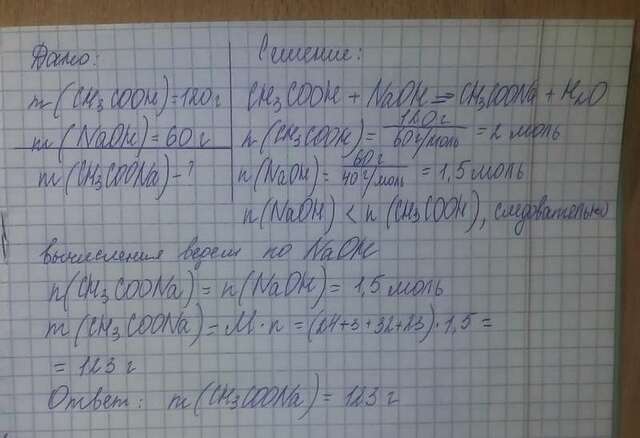 Дано:
m(CH₃COOH)=120г
m(NaOH)=60г
m(CH₃COONa)-?
Решение:
CH₃COOH + NaOH = CH₃COONa + H₂O
n(CH₃COOH) = 120г / 60г/моль = 2 моль
n(NaOH) = 60г / 40г/моль = 1,5 моль
n(NaOH) < n(CH₃COOH), следовательно
вычисления ведем по NaOH
n(CH₃COONa) = n(NaOH) = 1,5 моль
m(CH₃COONa) = M·n = (24+3+32+23)·1,5 =
= 123 г
Ответ: m(CH₃COONa) = 123 г